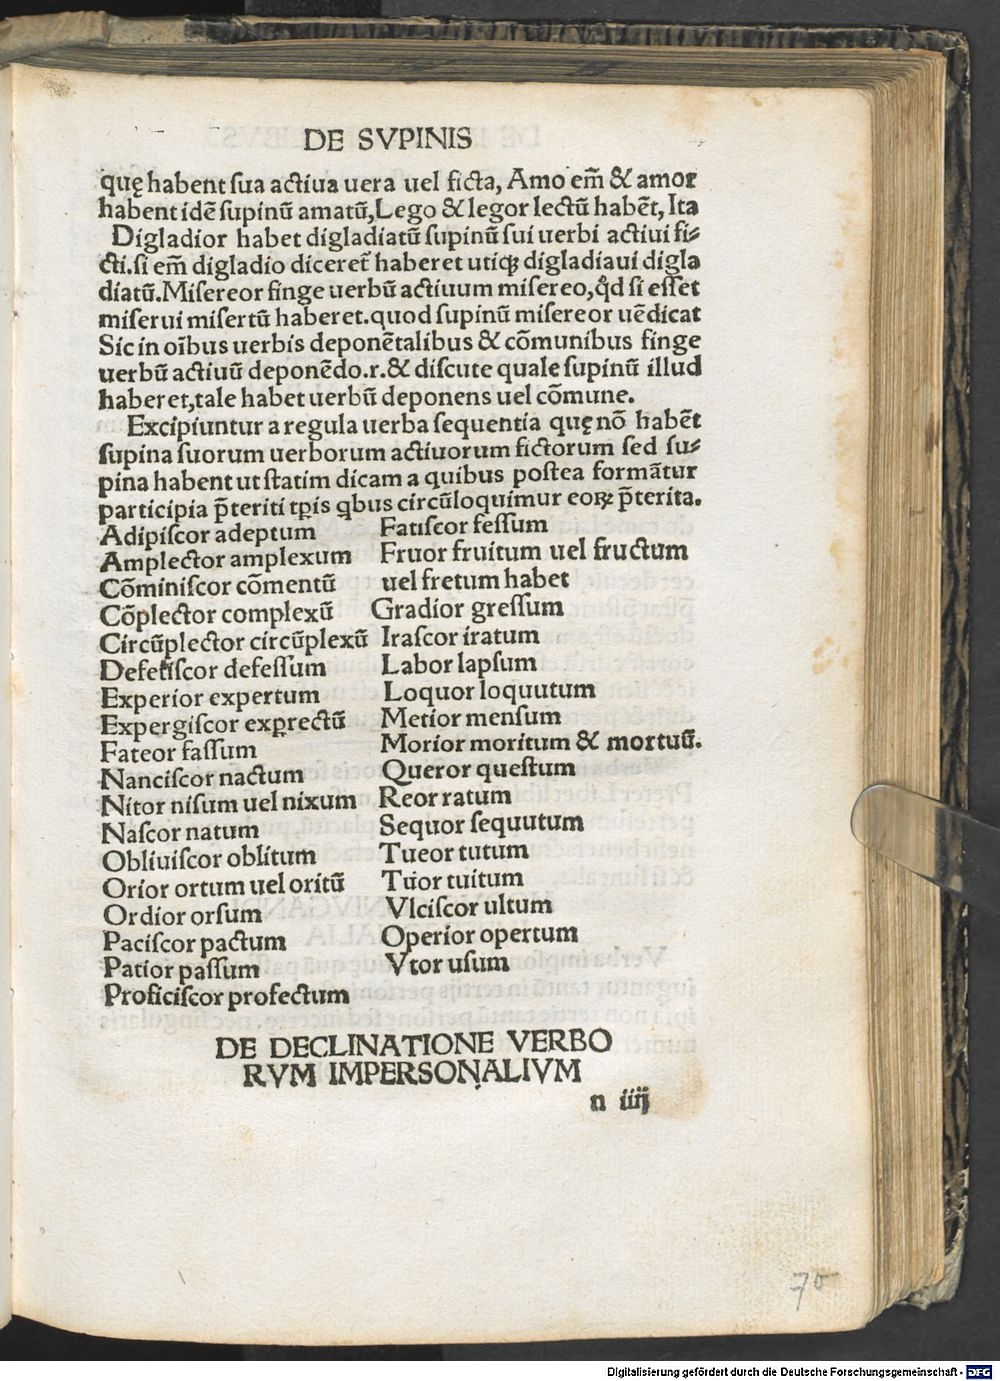 DE SVPINIS
quę habent ſua actiua uera uel ficta, Amo em̄ & amor
habent idē ſupinū amatū, Lego & legor lectū habēt, Ita
Digladior habet digladiatū ſupinū ſui uerbi actiui fi⸗
cti. ſi em̄ digladio diceret̄ haberet utiqꝫ digladiaui digla
diatū. Miſereor finge uerbū actiuum miſereo, qd̓ ſi eſſet
miſerui miſertū haberet. quod ſupinū miſereor uēdicat
Sic in oībus uerbis deponētalibus & cōmunibus finge
uerbū actiuū deponēdo .r. & diſcute quale ſupinū illud
haberet, tale habet uerbū deponens uel cōmune.
Excipiuntur a regula uerba ſequentia quę nō habēt
ſupina ſuorum uerborum actiuorum fictorum ſed ſu⸗
pina habent ut ſtatim dicam a quibus poſtea formātur
participia p̄teriti tꝑis qbus circūloquimur eoꝝ p̄terita.
Adipiſcor adeptum
Amplector amplexum
Cōminiſcor cōmentū
Cōplector complexū
Circūplector circūplexū
Defetiſcor defeſſum
Experior expertum
Expergiſcor exꝑrectū
Fateor faſſum
Nanciſcor nactum
Nitor niſum uel nixum
Naſcor natum
Obliuiſcor oblitum
Orior ortum uel oritū
Ordior orſum
Paciſcor pactum
Patior paſſum
Proficiſcor profectum
Fatiſcor feſſum
Fruor fruitum uel fructum
uel fretum habet
Gradior greſſum
Iraſcor iratum
Labor lapſum
Loquor loquutum
Metior menſum
Morior moritum & mortuū.
Queror queſtum
Reor ratum
Sequor ſequutum
Tueor tutum
Tuor tuitum
Vlciſcor ultum
Operior opertum
Vtor uſum
DE DECLINATIONE VERBO
RVM IMPERSONALIVM
n iiij
70
Digitalisierung gefördert durch die Deutsche Forschungsgemeinschaft - DFG